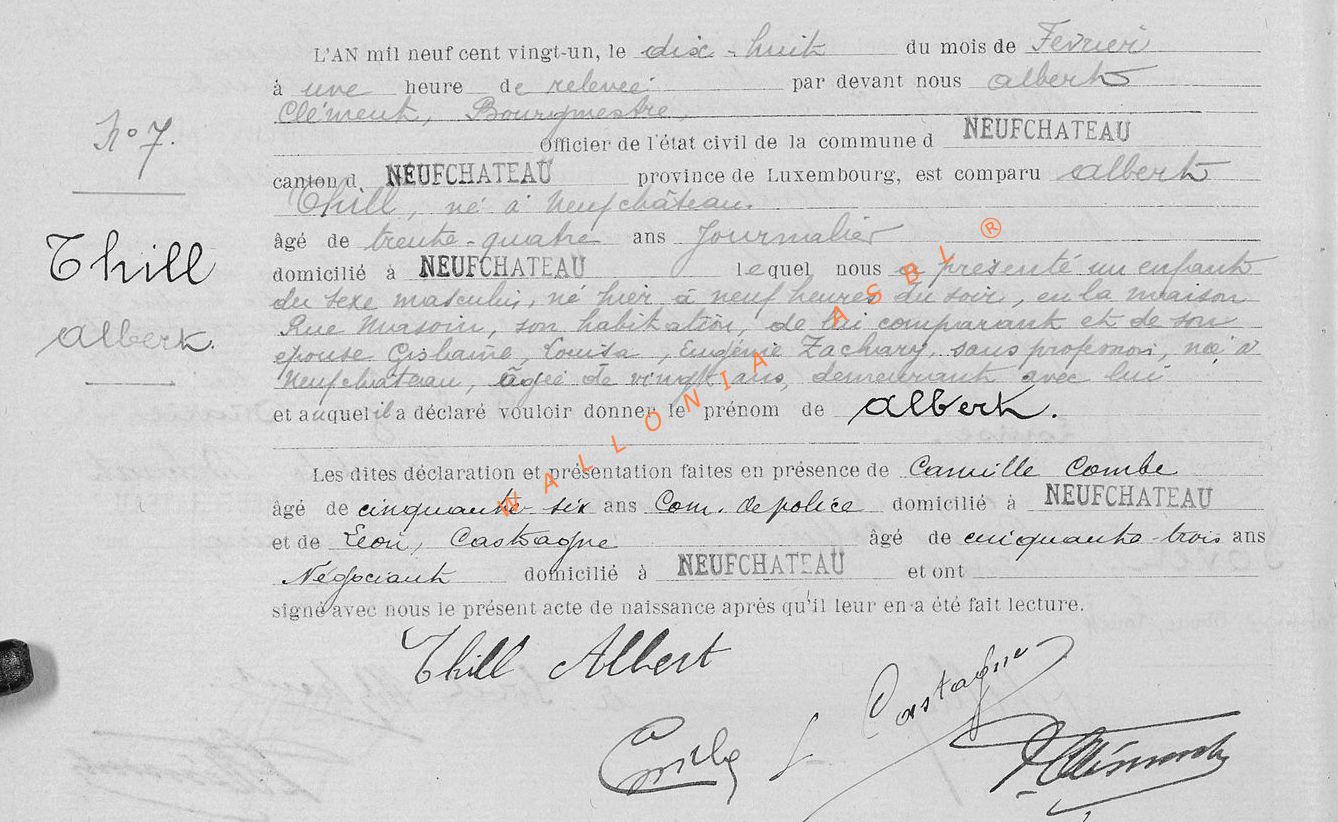 L'AN mil neuf cent vingt-un, le dix-huit du mois de Fevrier
à une heure de relevée par devant nous Albert
Clément, Bourgmestre,
Officier de l'état civil de la commune d NEUFCHATEAU
N° 7.
canton d NEUFCHATEAU province de Luxembourg, est comparu Albert
Thill, né à Neufchâteau.
âgé de trente-quatre ans Journalier
Thill
Albert.
domicilié à NEUFCHATEAU lequel nous a présenté un enfant
du sexe masculin, né hier à neuf heures du soir, en la maison
Rue, son habitation, de lui comparant et de son
épouse Gislaine, Louisa, Eugénie Zachary, sans profession, née à
Neufchateau, âgée de vingt ans, demeurant avec lui
et auquel il a déclaré vouloir donner le prénom de Albert.
Les dites déclaration et présentation faites en présence de Camille Combe
âgé de cinquante-six ans Com. de police domicilié à NEUFCHATEAU
et de Léon, Castagne âgé de cinquante-trois ans
Négociant domicilié à NEUFCHATEAU et ont
signé avec nous le présent acte de naissance après qu'il leur en a été fait lecture.
Thill Albert
L Castagne
WALLONIA ASBL ®